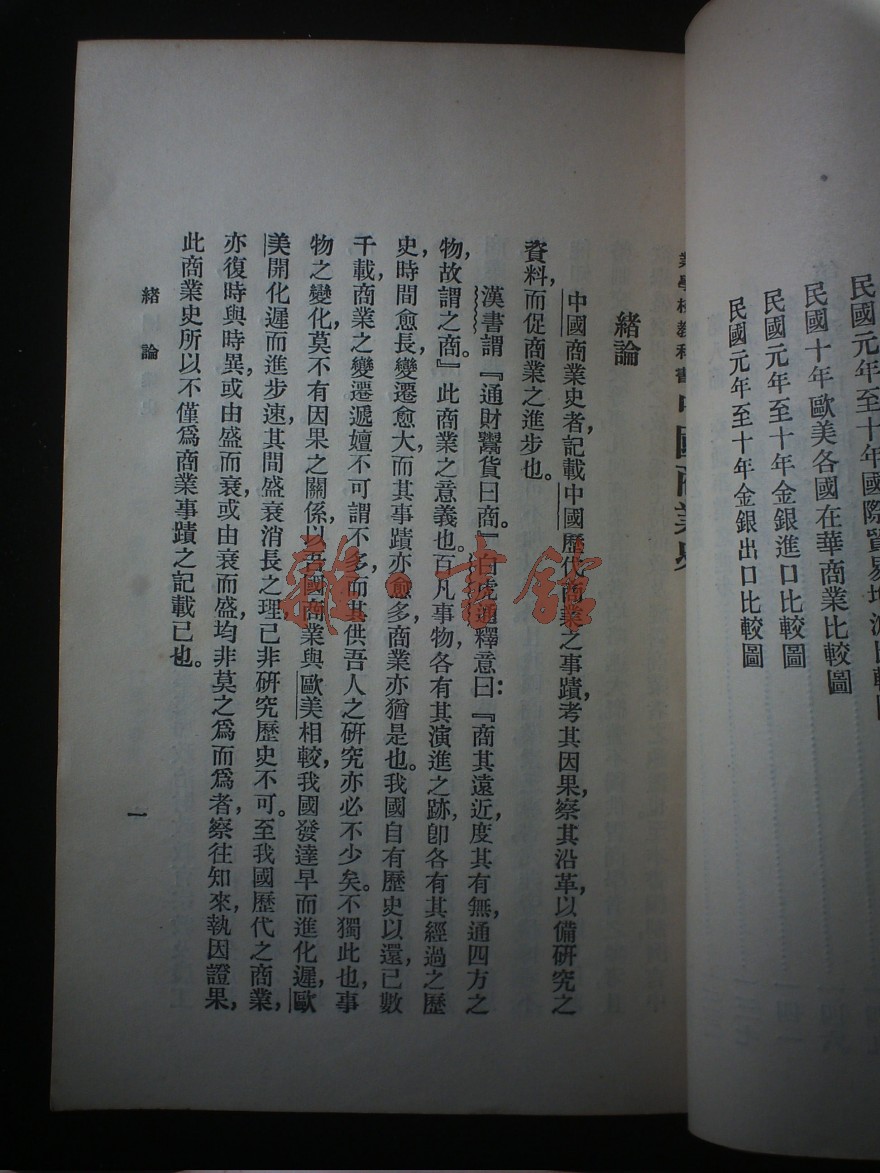 民國元年至十年國際貿易
民國十年歐美各國在華商業比較圖
民國元年至十年金銀進口比較圖
民國元年至十年金銀出口比較圖
業學校教科書中國商業史
緒論
中國商業史者，記載中國歷代商業之事蹟，考其因果，察其沿革，以備研究之
資料，而促商業之進步也。
漢書謂『通財鬻貨曰商。』白虎通釋意曰：『商其遠近，度其有無，通四方之
物，故謂之商。』此商業之意義也。百凡事物，各有其演進之跡，卽各有其經過之歷
史，時間愈長，變遷愈大，而其事蹟亦愈多，商業亦猶是也。我國自有歷史以還，已數
千載，商業之變遷遞嬗，不可謂不多，而其供吾人之研究，亦必不少矣。不獨此也，事
物之變化，莫不有因果之關係，以吾國商業與歐美相較，我國發達早而進化遲，歐
美開化遲而進步速，其間盛衰消長之理，已非研究歷史不可。至我國歷代之商業，
亦復時與時異，或由盛而衰，或由衰而盛，均非莫之爲而爲者，察往知來，執因證果，
此商業史所以不僅爲商業事蹟之記載已也。
緒論
一
雜·書館